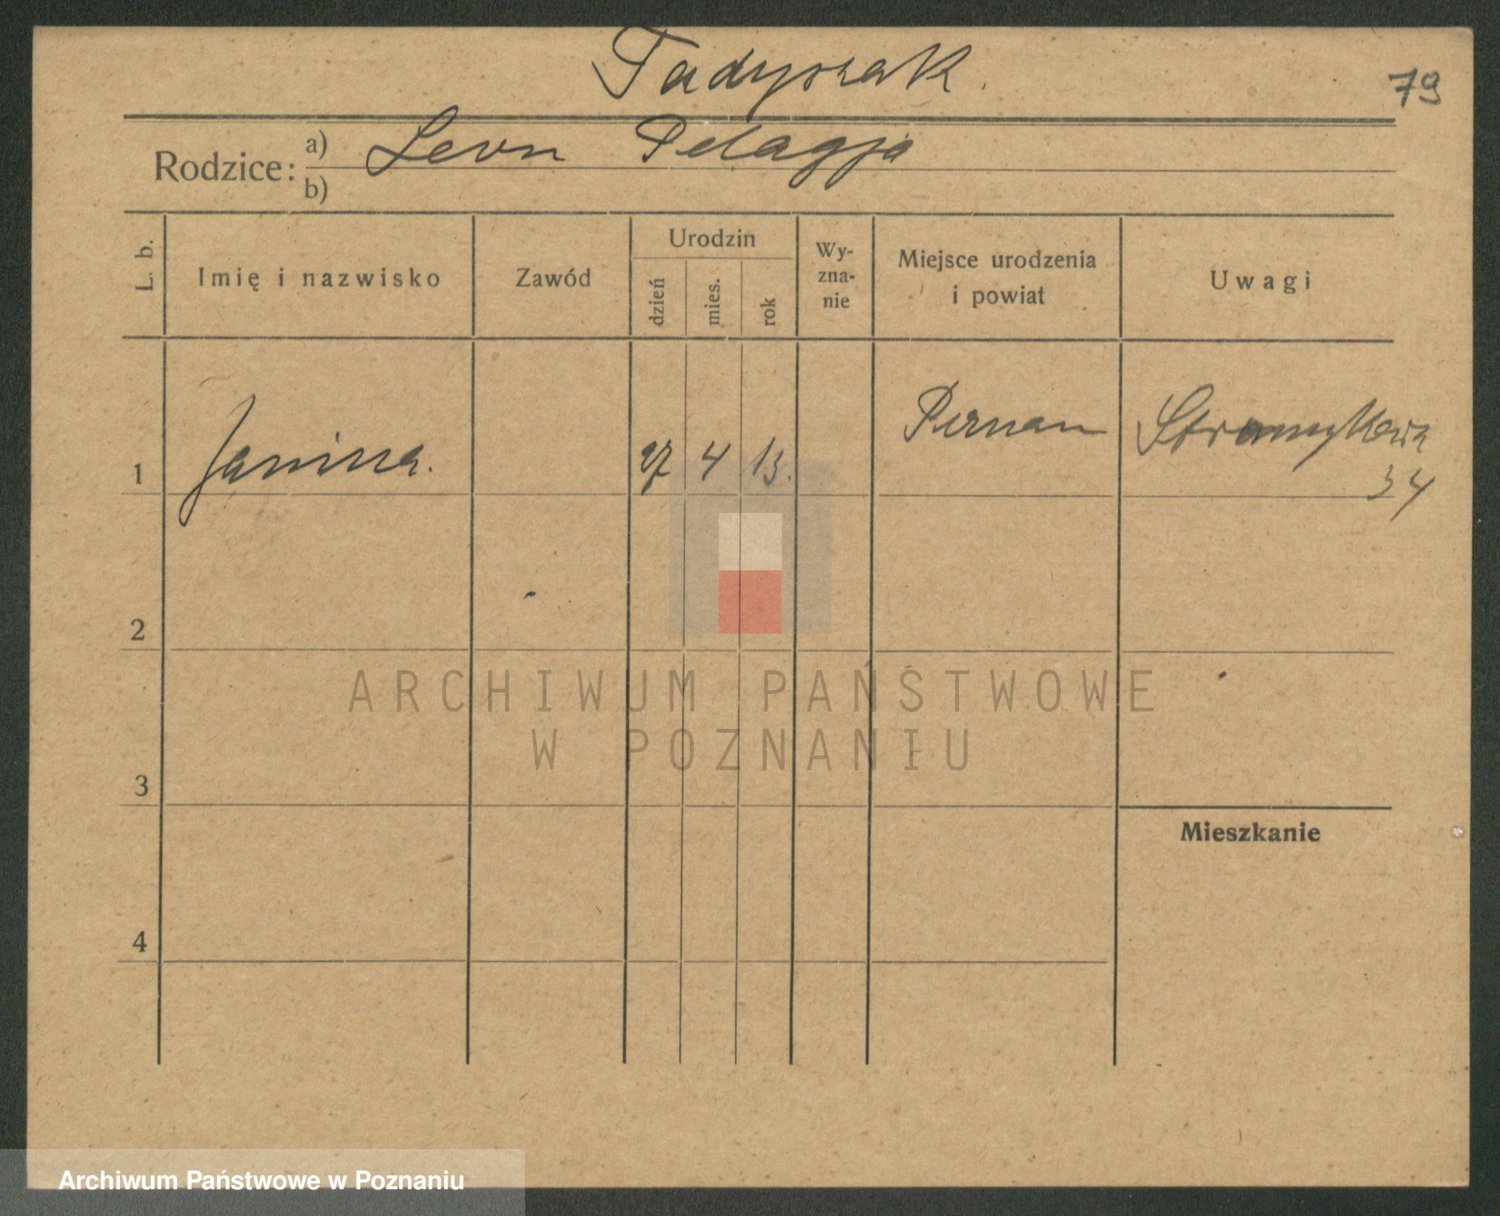 Tadyszak.
79
Rodzice: a) Leon Pelagja
b)
L. b.
Imię i nazwisko
Zawód
Urodzin
dzień
mies.
rok
Wy-
zna-
nie
Miejsce urodzenia
i powiat
Uwagi
1 Janina. 27 4 13. Pernan
34
2
3
4
Mieszkanie
ARCHIWUM PAŃSTWOWE
W POZNANIU
Archiwum Państwowe w Poznaniu